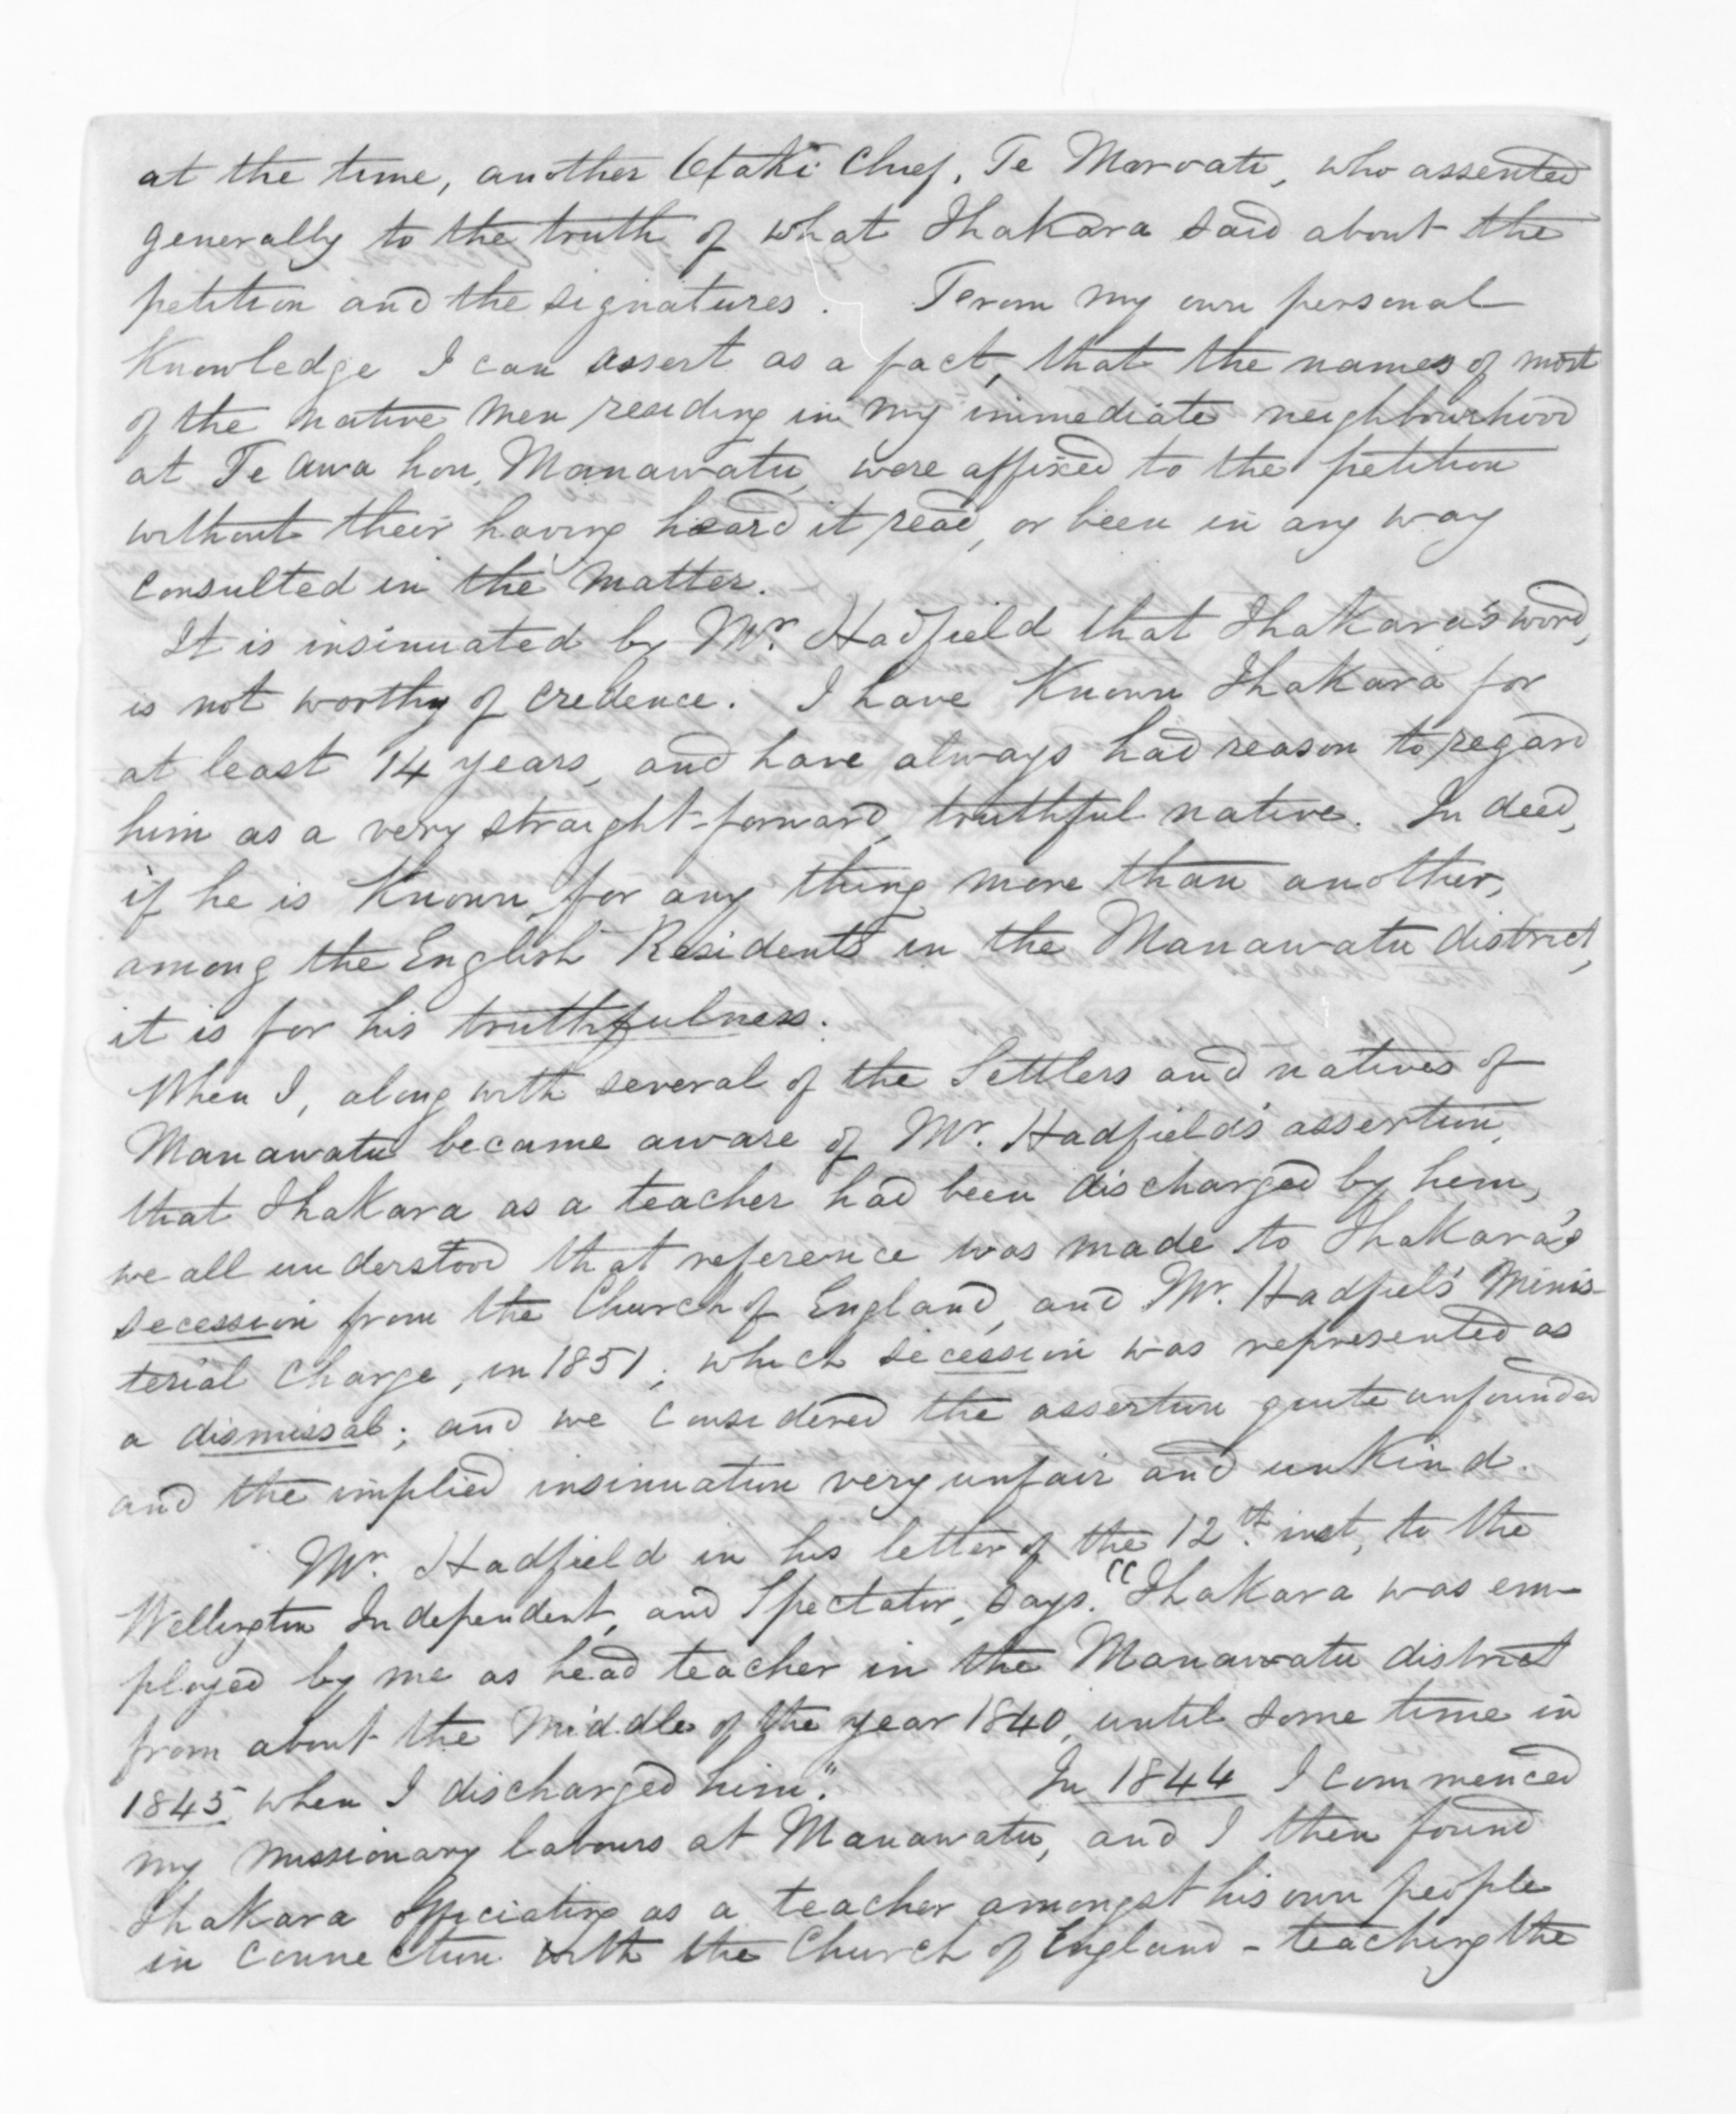 at the time, another Otaki Chief, Te Moroati, who assented
generally to the truth of what Ihakara said about the
petition and the signatures. From my own personal
Knowledge I can assert as a fact, that the names of most
of the native men residing in my immediate neighbourhood
at Te Awa hou, Manawatu, were affixed to the petition
without their having heard it read, or been in any way
consulted in the matter.
It is insinuated by Mr. Hadfield that Ihakara's word,
is not worthy of credence. I have Known Ihakara for
at least 14 years, and have always had reason to regard
him as a very straight-forward, truthful native. In deed,
if he is Known for any thing more than another,
among the English Residents in the Manawatu district,
it is for his truthfulness.
When I, along with several of the Settlers and natives of
Manawatu became aware of Mr. Hadfield's assertion,
that Ihakara as a teacher had been discharged by him,
we all understood that reference was made to Ihakara's
secession from the Church of England, and Mr. Hadfiel's Minis-
terial Charge, in 1851; which secession was represented as
a dismissal; and we considered the assertion quite unfounded
and the implied insinuation very unfair and unkind.
Mr. Hadfield in his letter of the 12th. inst, to the
Wellington Independent, and Spectator, says. "Ihakara was em-
ployed by me as head teacher in the Manawatu district
from about the Middle of the year 1840, until some time in
1845, when I discharged him". In 1844 I commenced
my missionary labours at Manawatu, and I then found
Ihakara officiating as a teacher amongst his own people
in connection with the Church of England - teaching the